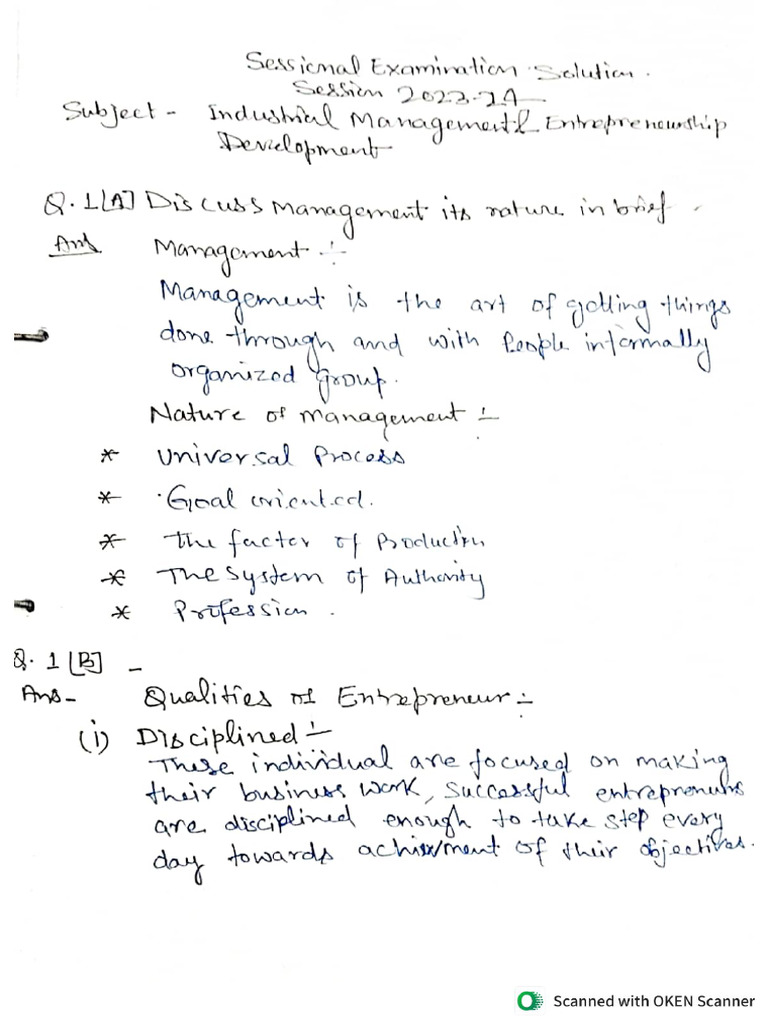 Sessional Examination Solution.
Session 2023-24
Subject - Industrial Management & Entrepreneurship
Development
Q.1[A] Discuss management its nature in brief.
Ans Management :-
Management is the art of getting things
done through and with People informally
organized group.
Nature of management :-
* Universal Process
* Goal oriented.
* The factor of Production
* The system of Authority
* Profession.
Q.1[B] -
Ans- Qualities of Entrepreneur :-
(i) Disciplined :-
These individual are focused on making
their business work, successful entrepreneurs
are disciplined enough to take step every
day towards achievment of their objectives.
Scanned with OKEN Scanner